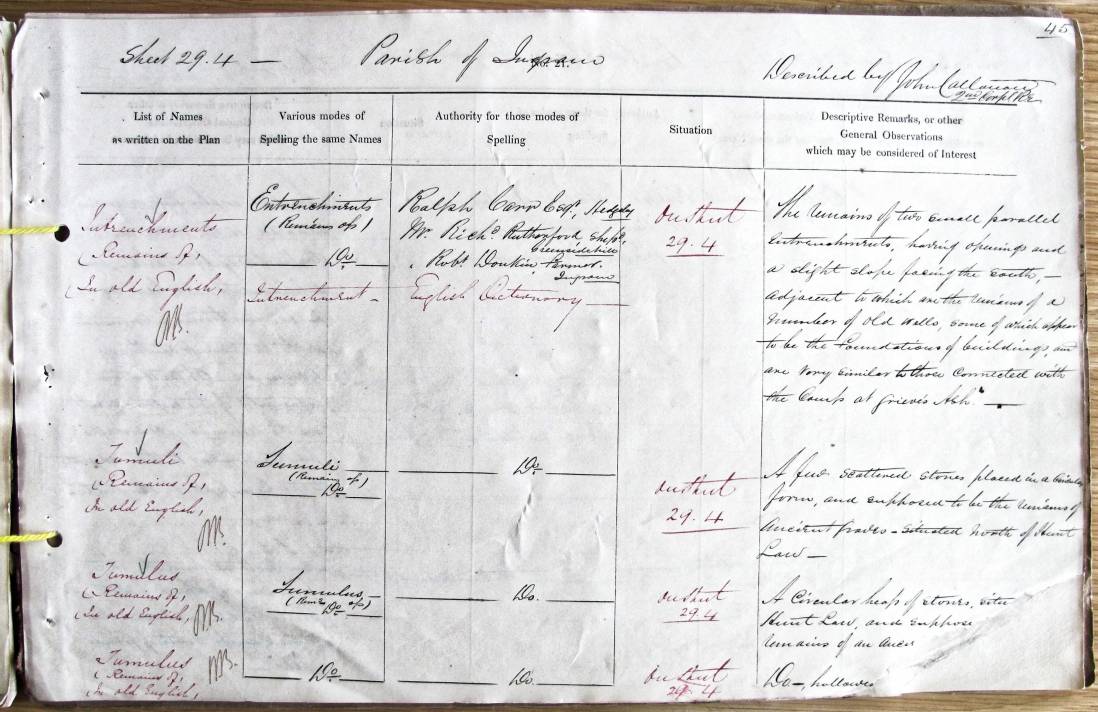 45
Sheet 29.4 — Parish of Ingram
No. 21.
Described by John Callanan
2nd Corpl RE
List of Names
as written on the Plan
Various modes of
Spelling the same Names
Authority for those modes of
Spelling
Situation
Descriptive Remarks, or other
General Observations
which may be considered of Interest
Intrenchments
(Remains of,
(In old English,
Entrenchments
(Remains of)
Do
Intrenchment
Ralph Carr Esqr. Hedgeley
Mr. Richd. Rutherford Shepd.
Greensidehill
Robt Donkin Farmer.
Ingram
English Dictionary
On Shut
29.4
The remains of two small parallel
entrenchments, having openings and
a slight slope facing the south, —
adjacent to which are the remains of a
number of old walls, some of which appear
to be the foundations of buildings, and
are very similar to those connected with
the Camps at Grieve's Ash. —
Tumuli
(Remains of,
In old English,
Tumuli
(Remains of)
Do
Do
On Shut
29.4
A few scattered stones placed in a circular
form, and supposed to be the remains of
Ancient Graves – situated North of Hunt
Law —
Tumulus
(Remains of,
(In old English,
Tumulus
(Rems of)
Do
Do.
On Shut
29.4
A Circular heap of stones, situ
Hunt Law, and suppose
remains of an Ancie
Tumulus
(Remains of,
In old English,
Do
Do
On Shut
29.4
Do —, hollowed